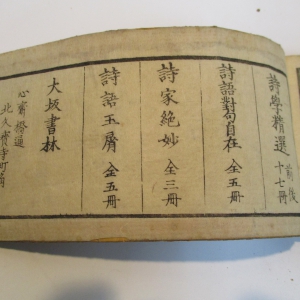 詩學精選 前後 十七冊
詩語對句自在 全五冊
詩家絶妙 全三冊
詩語玉屑 全五冊
大坂書林
心齋橋通
北久寳寺町角